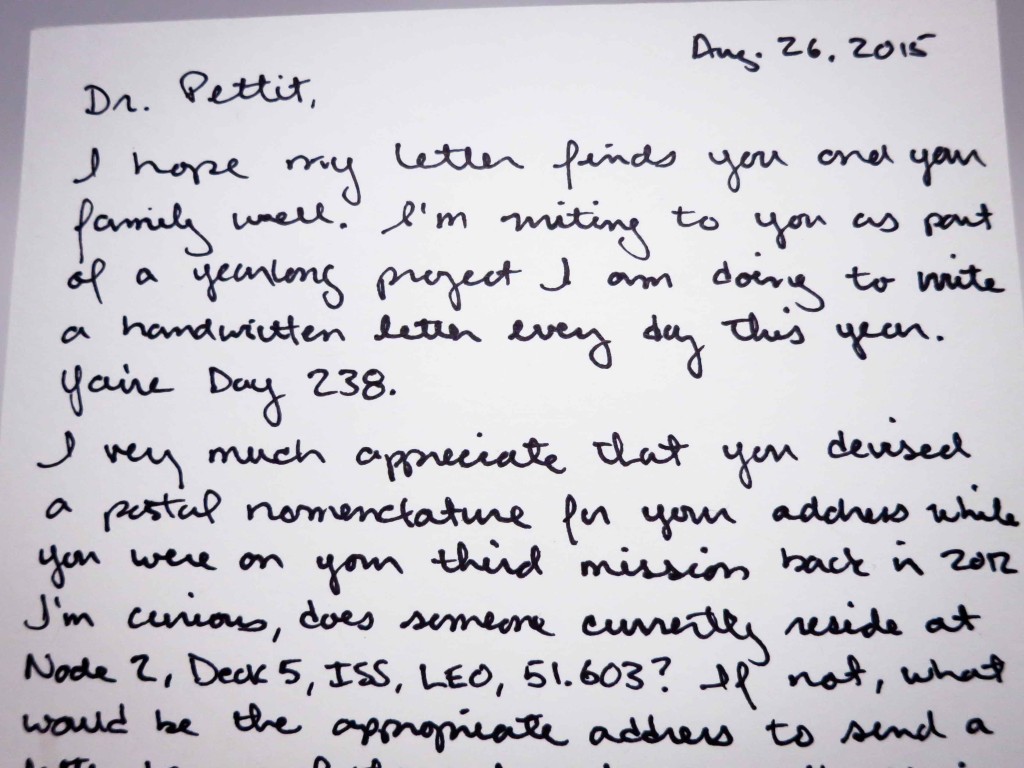 Aug. 26, 2015
Dr. Pettit,
I hope my letter finds you and your
family well. I'm writing to you as part
of a yearlong project I am doing to write
a handwritten letter every day this year.
You're Day 238.
I very much appreciate that you devised
a postal nomenclature for your address while
you were on your third mission back in 2012
I'm curious, does someone currently reside at
Node 2, Deck 5, ISS, LEO, 51.603? If not, what
would be the appropriate address to send a